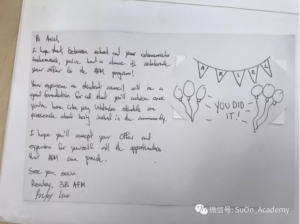 Hi Arieh,
I hope that between school and your extracurricular
involvements, you've had a chance to celebrate
your offer to the AFM program!
Your experience on student council will be a
great foundation for all that you'll achieve once
you're here. Like you, Waterloo students are
passionate about being involved in the community.
I hope you'll accept your offer and
experience for yourself all the opportunities
that AFM can provide.
See you soon,
3B AFM
YOU DID
IT!
微信号: SuOn_Academy